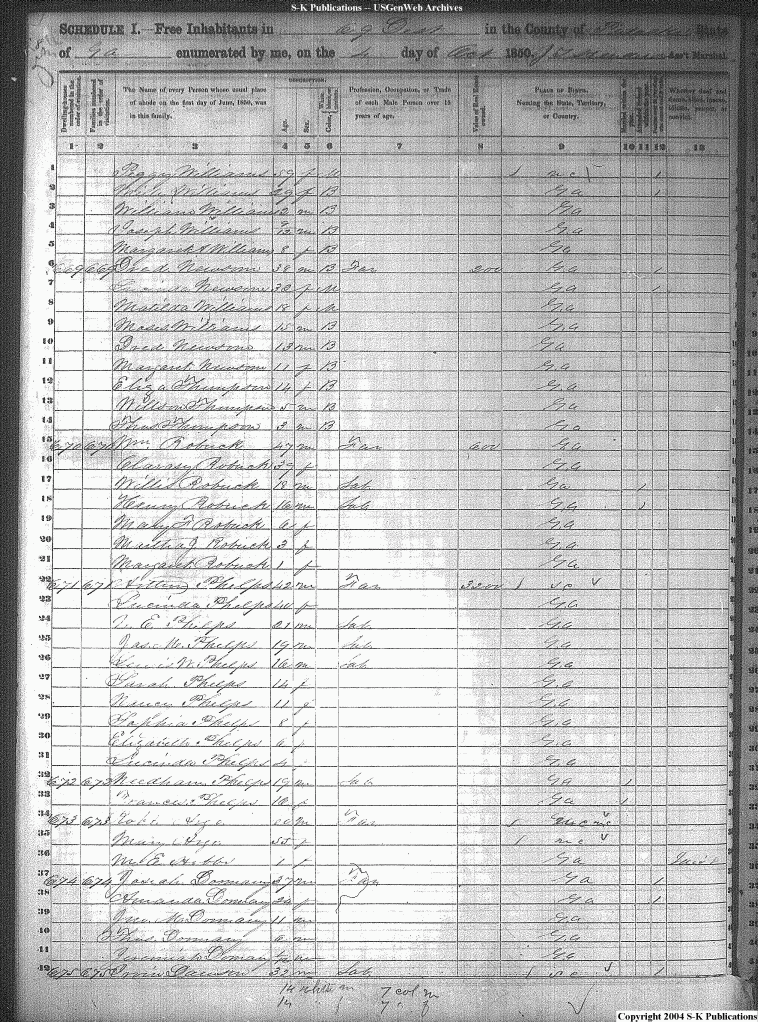 S-K Publications -- USGenWeb Archives
SCHEDULE I. Free Inhabitants in Dist in the County of Pulaski State
of Ga enumerated by me, on the day of Oct 1850. Ass't Marshal.
Dwelling-houses numbered in the order of visitation.
Families numbered in the order of visitation.
The Name of every Person whose usual place of abode on the first day of June, 1850, was in this family.
DESCRIPTION.
Age.
Sex.
Profession, Occupation, or Trade of each Male Person over 15 years of age.
Value of Real Estate owned.
PLACE OF BIRTH. Naming the State, Territory, or Country.
Whether deaf and dumb, blind, insane, idiotic, pauper, or convict.
1 2 3 4 5 6 7 8 9 10 11 12 13
1 Peggy Williams 59 f M N C 1
2 Williams 29 f B Ga 1
3 William Williams 2 m B Ga
4 Joseph Williams m B Ga
5 Margaret A Williams 8 f B Ga
6 669 669 Dred Newsom 38 m B Far 200 Ga 1
7 Lucinda Newsom 30 f M Ga 1
8 Matilda Williams 18 f M Ga
9 Moses Williams 15 m B Ga
10 Dred Newsom 13 m B Ga
11 Margaret Newsom 11 f B Ga
12 Eliza Thompson 14 f B Ga
13 Willson Thompson 5 m B Ga
14 Thos Thompson 3 m B Ga
15 670 670 Wm Robuck 47 m Far 600 Ga
16 Robuck 39 f Ga
17 Willis Robuck 18 m Lab Ga 1
18 Henry Robuck 16 m Lab Ga 1
19 Mary F Robuck 6 f Ga
20 Martha J Robuck 3 f Ga
21 Margaret Robuck 1 f Ga
22 671 671 Phelps 42 m Far 3200 1 S C
23 Lucinda Phelps 40 f Ga
24 E. Phelps 21 m Lab Ga
25 Jas. M. Phelps 19 m Lab Ga
26 Lewis W. Phelps 16 m Lab Ga
27 Sarah Phelps 14 f Ga
28 Nancy Phelps 11 f Ga
29 Sophia Phelps 8 f Ga
30 Elizabeth Phelps 6 f Ga
31 Lucinda Phelps 4 Ga
32 672 672 Needham Phelps 19 m Lab Ga 1
33 Frances Phelps 16 f Ga 1
34 673 673 m Far 1 N C
35 Mary 55 f 1 N C
36 M. E. 1 f Ga
37 674 674 Josiah Dormany 37 m Far Ga 1
38 Amanda Dormany 24 f Ga 1
39 Jno. M. Dormany 11 m Ga
40 Thos. Dormany 6 m Ga
41 Jeremiah Dormany m Ga
42 675 675 Irvin Dawson 32 m Lab 1 S C 1
14 white m 7 col m
14 f 7 c f
Copyright 2004 S-K Publications